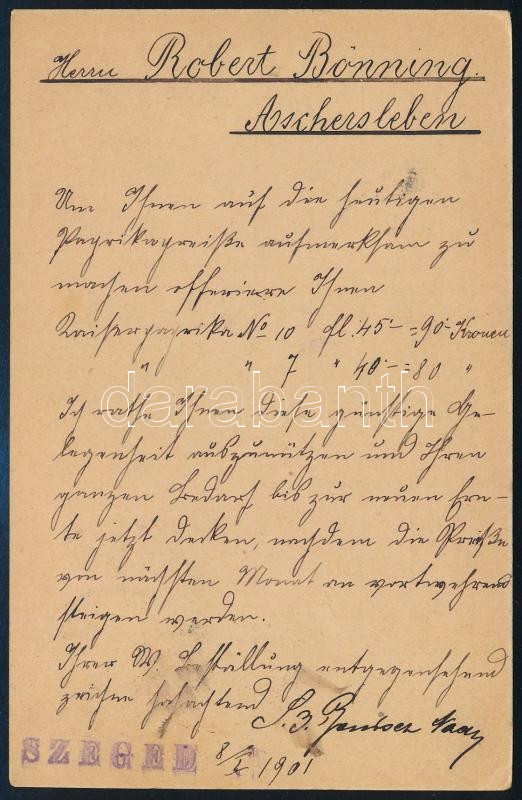 Herrn Robert Bönning.
Aschersleben
Um Ihnen auf die heutigen
Paprikapreiße aufmerksam zu
machen offeriere Ihnen
Kaiserpaprika No 10 fl. 45.- = 90.- Kronen
" " 7 " 40.- = 80 "
Ich rathe Ihnen diese günstige Ge-
legenheit auszunützen und Ihren
ganzen Bedarf bis zur neuen Ern-
te jetzt decken, nachdem die Preiße
von nächsten Monat an vortwehrend
steigen werden.
Ihrer W. Beställung entgegensehend
zeichne hochachtend
SZEGED 8/I 1901
darabanth